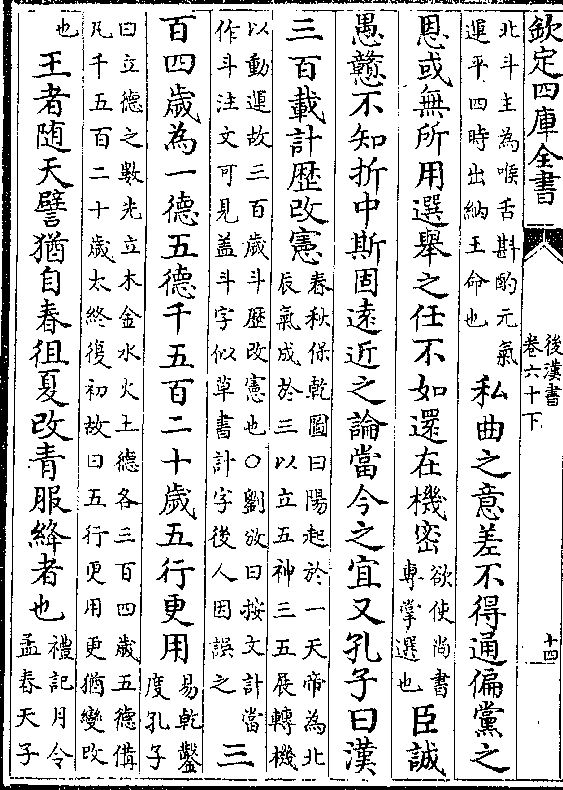 欽定四庫全書
後漢書
卷六十下
十四
北斗主為喉舌斟酌元氣
運平四時出納王命也
私曲之意差不得通偏黨之
恩或無所用選舉之任不如還在機密
欲使尚書
專掌選也
臣誠
愚戇不知折中斯固遠近之論當今之宜又孔子曰漢
三百載計歴改憲
春秋保乾圖曰陽起於一天帝為北
辰氣成於三以立五神三五展轉機
以動運故三百歲斗歴改憲也○劉攽曰按文計當
作斗注文可見蓋斗字似草書計字後人因誤之
三
百四歲為一德五德千五百二十歲五行更用
易乾鑿
度孔子
曰立德之數先立木金水火土德各三百四歲五德備
凡千五百二十歲太終復初故曰五行更用更猶變改
也
王者隨天譬猶自春徂夏改青服絳者也
禮記月令
孟春天子